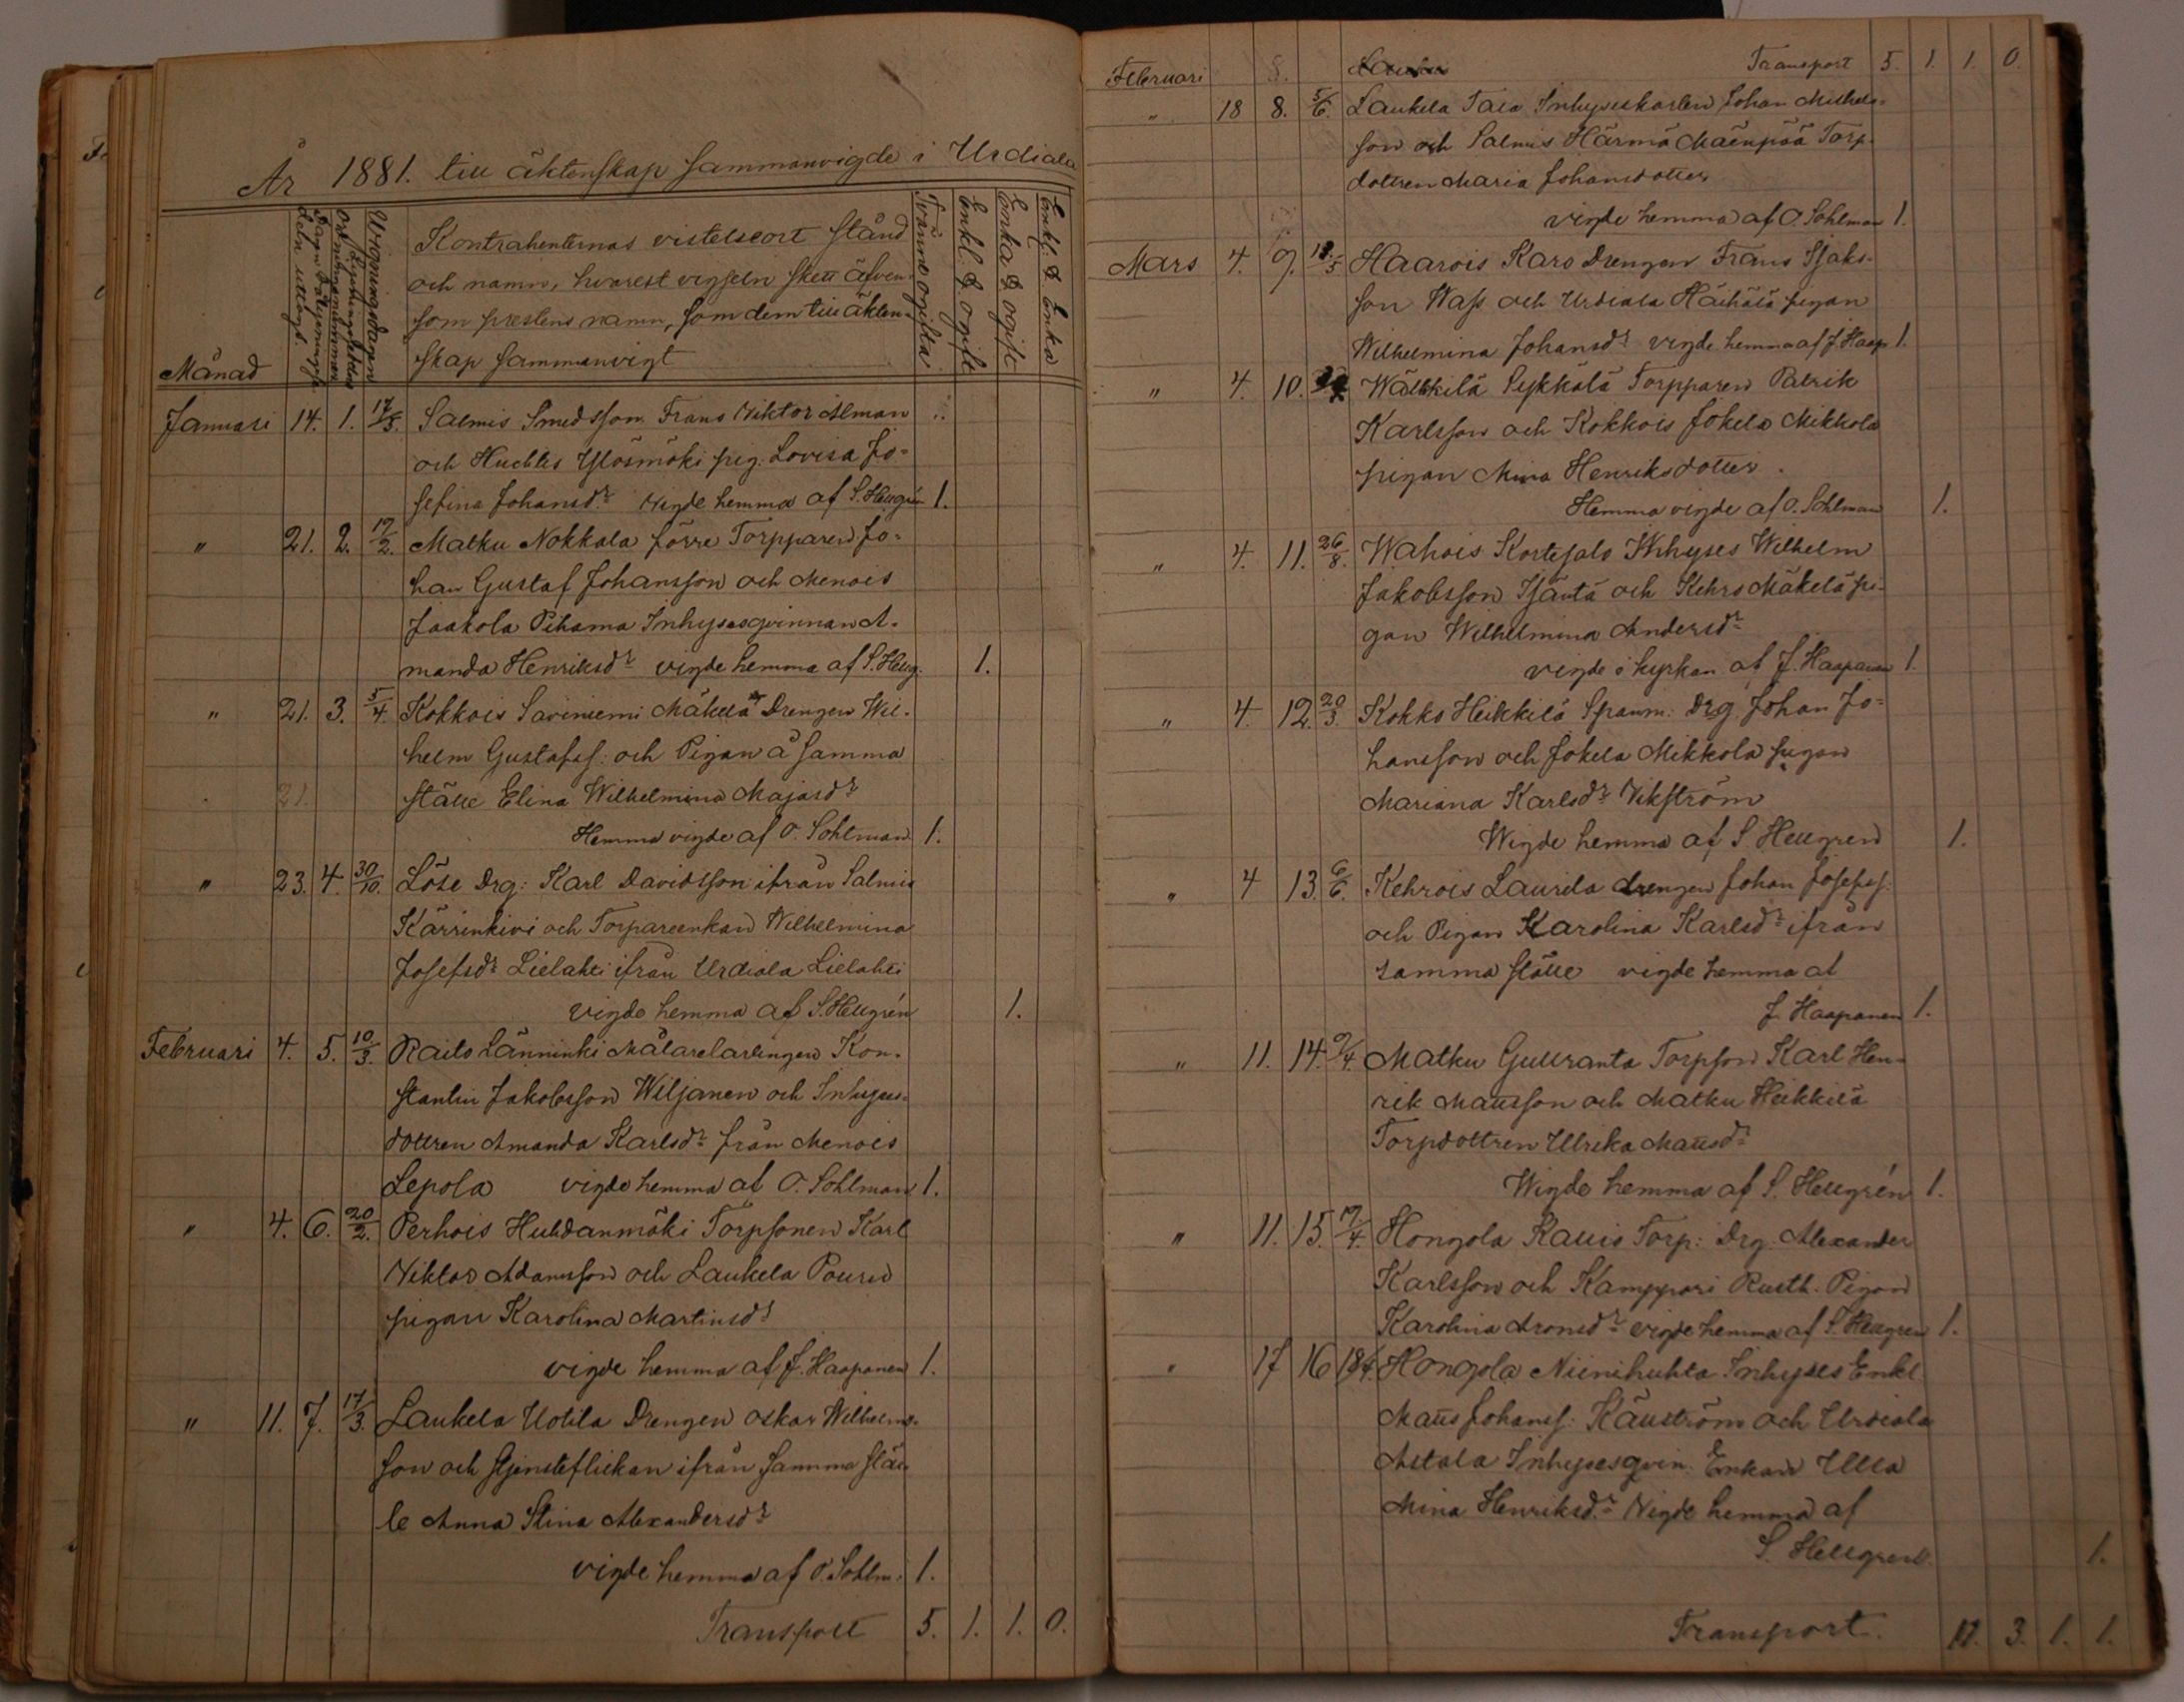 År 1881. till äktenskap sammanvigde i Urdiala
Månad
Dagen då lysningssedeln uttogs.
Lysningssedelns ordningsnummer
Wigningsdagen
Kontrahenternas vistelseort stånd
och namn, hvarest vigseln skett äfven-
som prestens namn, som dem till äkten-
skap sammanvigt
Tvänne ogifta
Enkl: & ogift
Enka & ogift
Enkl: & Enka
Januari 14. 1. 17/5. Salmis Smedsson Frans Viktor Alman
och Huchtis Ylösmäki pig. Lovisa Jo-
sefina Johansdr Vigde hemma af S. Hellgrén 1.
" 21. 2. 19/2. Matku Nokkala förre Torpparen Jo-
han Gustaf Johansson och Menois
Jaakola Pihama Inhysesqvinnan A-
manda Henriksdr vigde hemma af S. Hellg. 1.
" 21. 3. 5/4. Kokkois Saviniemi Mäkelä Drengen Wil-
helm Gustafss: och Pigan å samma
21. ställe Elina Wilhelmina Majasdr
Hemma vigde af O. Sohlman. 1.
" 23. 4. 30/10. Löse Drg: Karl Davidsson ifrån Salmis
Kärrinkivi och Torpareenkan Wilhelmina
Josefsdr Lielahti ifrån Urdiala Lielahti
vigde hemma af S. Hellgrén 1.
Februari 4. 5. 10/3. Raito Länninki Målarelärlingen Kon-
stantin Jakobsson Wiljanen och Inhyses-
dottren Amanda Karlsdr från Menois
Lepola vigde hemma af O. Sohlman 1.
" 4. 6. 20/2. Perhois Huhdanmäki Torpsonen Karl
Niklas Adamsson och Laukela Pouru
pigan Karolina Martinsdr
vigde hemma af J. Haapanen 1.
" 11. 7. 17/3. Laukela Uotila Drengen Oskar Wilhelms-
son och tjensteflickan ifrån samma stäl-
le Anna Stina Alexandersdr
vigde hemma af O. Sohlm: 1.
Transport 5. 1. 1. 0.
Februari 8. Transport 5. 1. 1. 0.
" 18 8. 5/6. Laukela Tala Inhyseskarlen Johan Michels-
son och Salmis Härmä Mäenpää Torp-
dottren Maria Johansdotter
vigde hemma af O. Sohlman 1.
Mars 4. 9. Haarois Karo Drengen Frans Isaks-
son Wass och Urdiala Häihälä pigan
Wilhelmina Johansdr vigde hemma af J. Haap 1.
" 4. 10. Wälkkilä Sykkälä Torpparen Patrik
Karlsson och Kokkois Jokela Mikkola
pigan Mina Henriksdotter.
Hemma vigde af O. Sohlman 1.
" 4. 11. 26/8. Wahois Kortesalo Inhyses Wilhelm
Jakobsson Isäntä och Kehro Mäkelä pi-
gan Wilhelmina Andersdr
vigde i kyrkan af J. Haapanen 1.
" 4. 12. 20/3. Kokko Heikkilä Spanm: Drg. Johan Jo-
hansson och Jokela Mikkola pigan
Mariana Karlsdr Vikström
Wigde hemma af S Hellgren 1.
" 4 13. 6/6. Kehrois Laurila drengen Johan Josefss:
och Pigan Karolina Karlsdr ifrån
samma ställe vigde hemma af
J. Haapanen 1.
" 11. 14. 9/4. Matku Gullranta Torpson Karl Hen-
rik Mattsson och Matku Heikkilä
Torpdottren Ulrika Mattsdr
Wigde hemma af S. Hellgrén 1.
" 11. 15. 17/4. Hongola Kallis Torp: Drg. Alexander
Karlsson och Kamppari Rusth. Pigan
Karolina Aronsdr vigde hemma af S. Hellgren 1.
" 17 16 18/4 Hongola Niinihuhta Inhyses Enkl.
Matts Johanss: Källström och Urdiala
Astala Inhysesqvin: Enkan Ulla
Mina Henriksdr Vigde hemma af
S. Hellgren 1.
Transport. 11. 3. 1. 1.